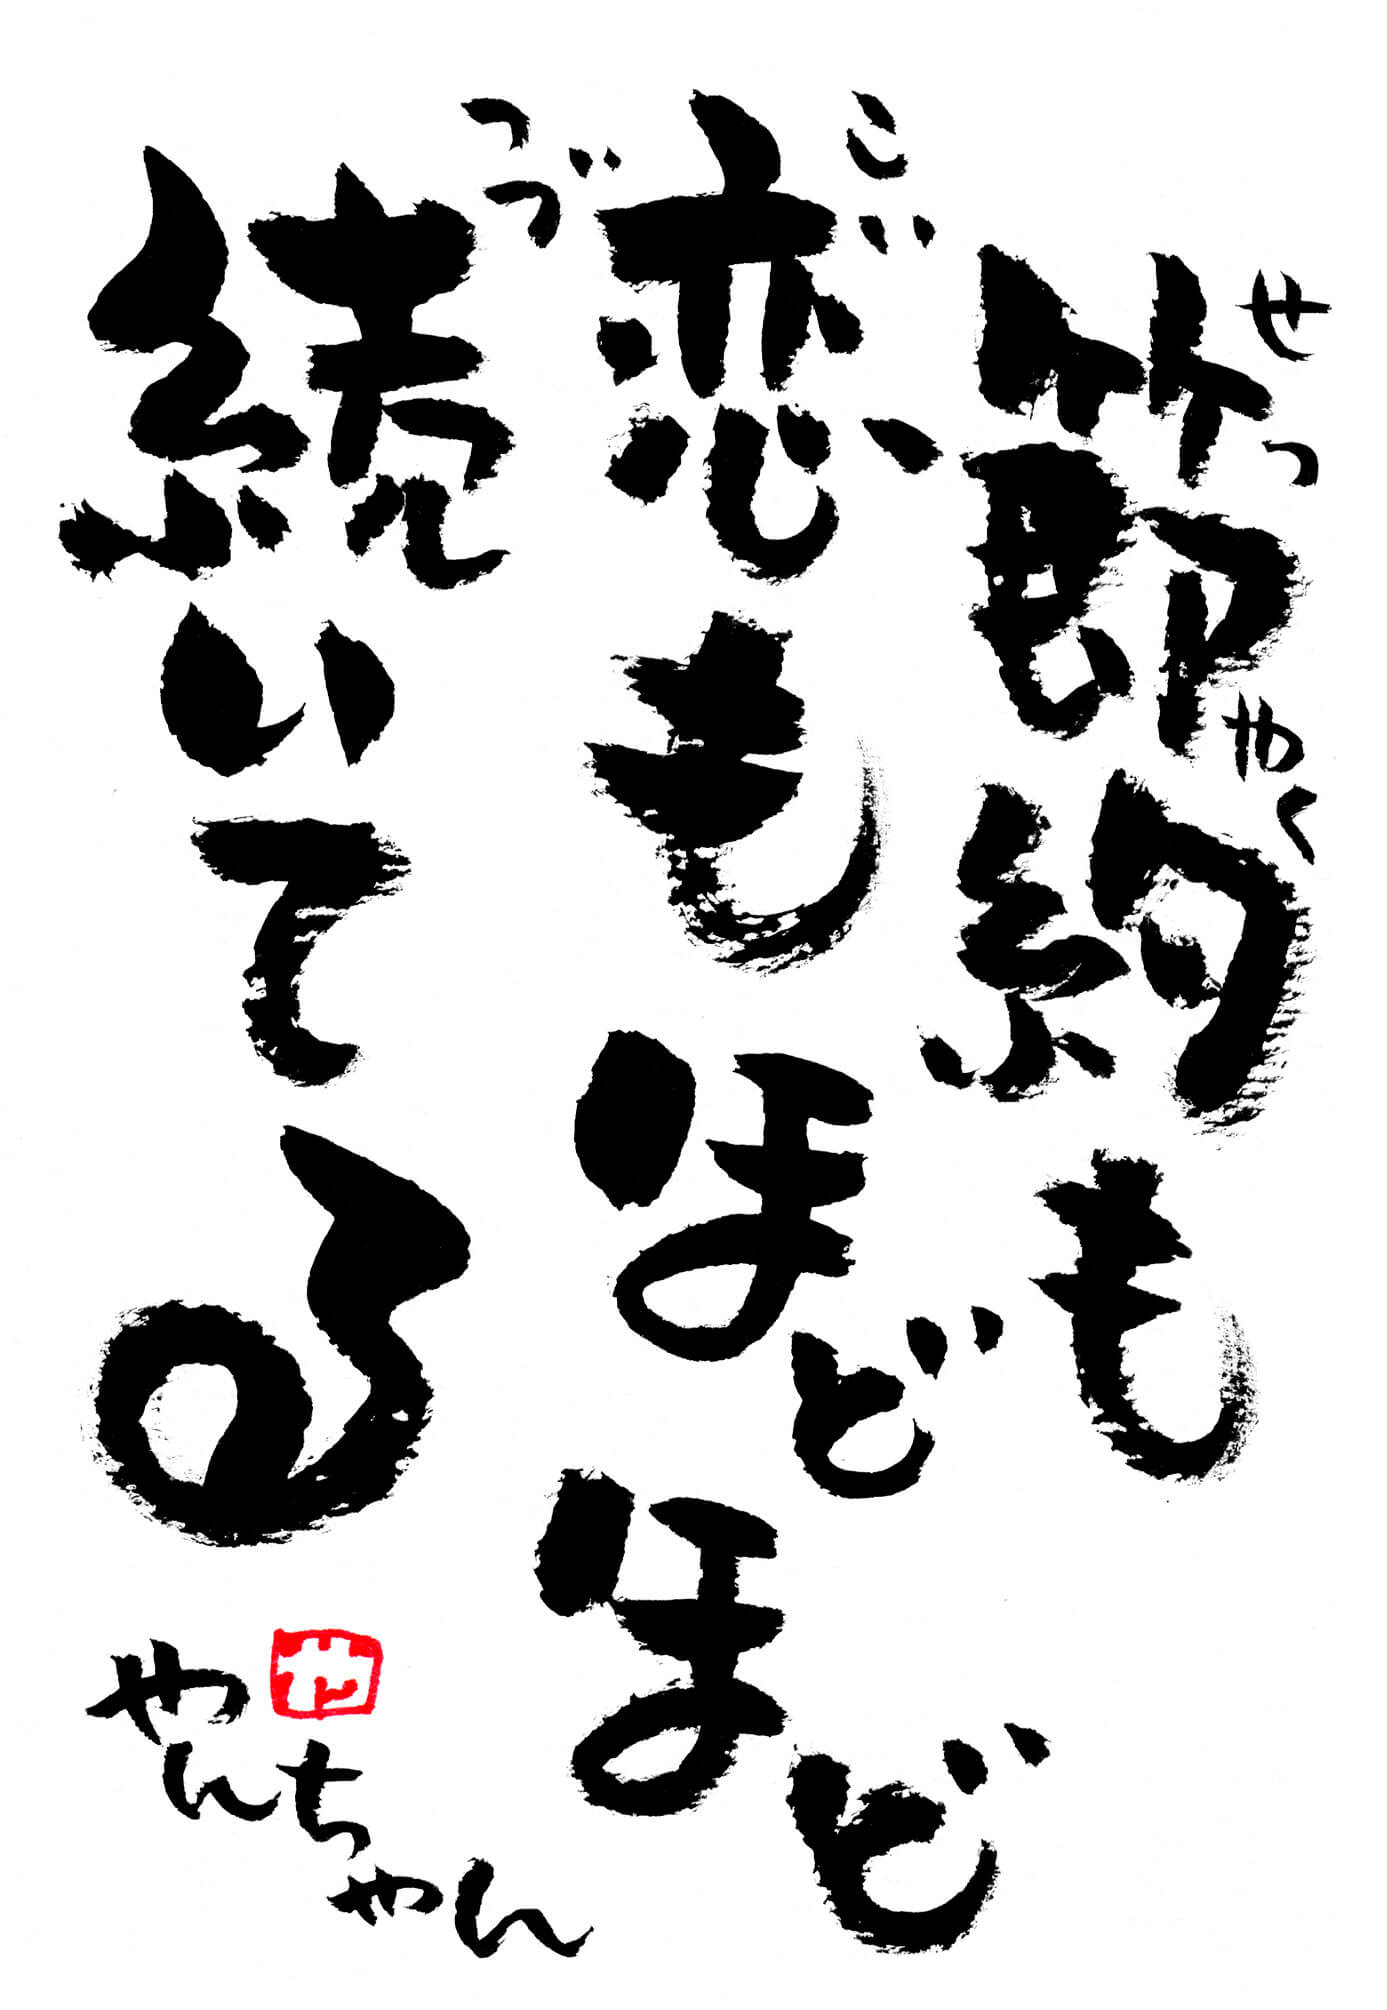 節約も
せつやく
恋もほどほど
こい
続いてる
つづ
や
やんちゃん